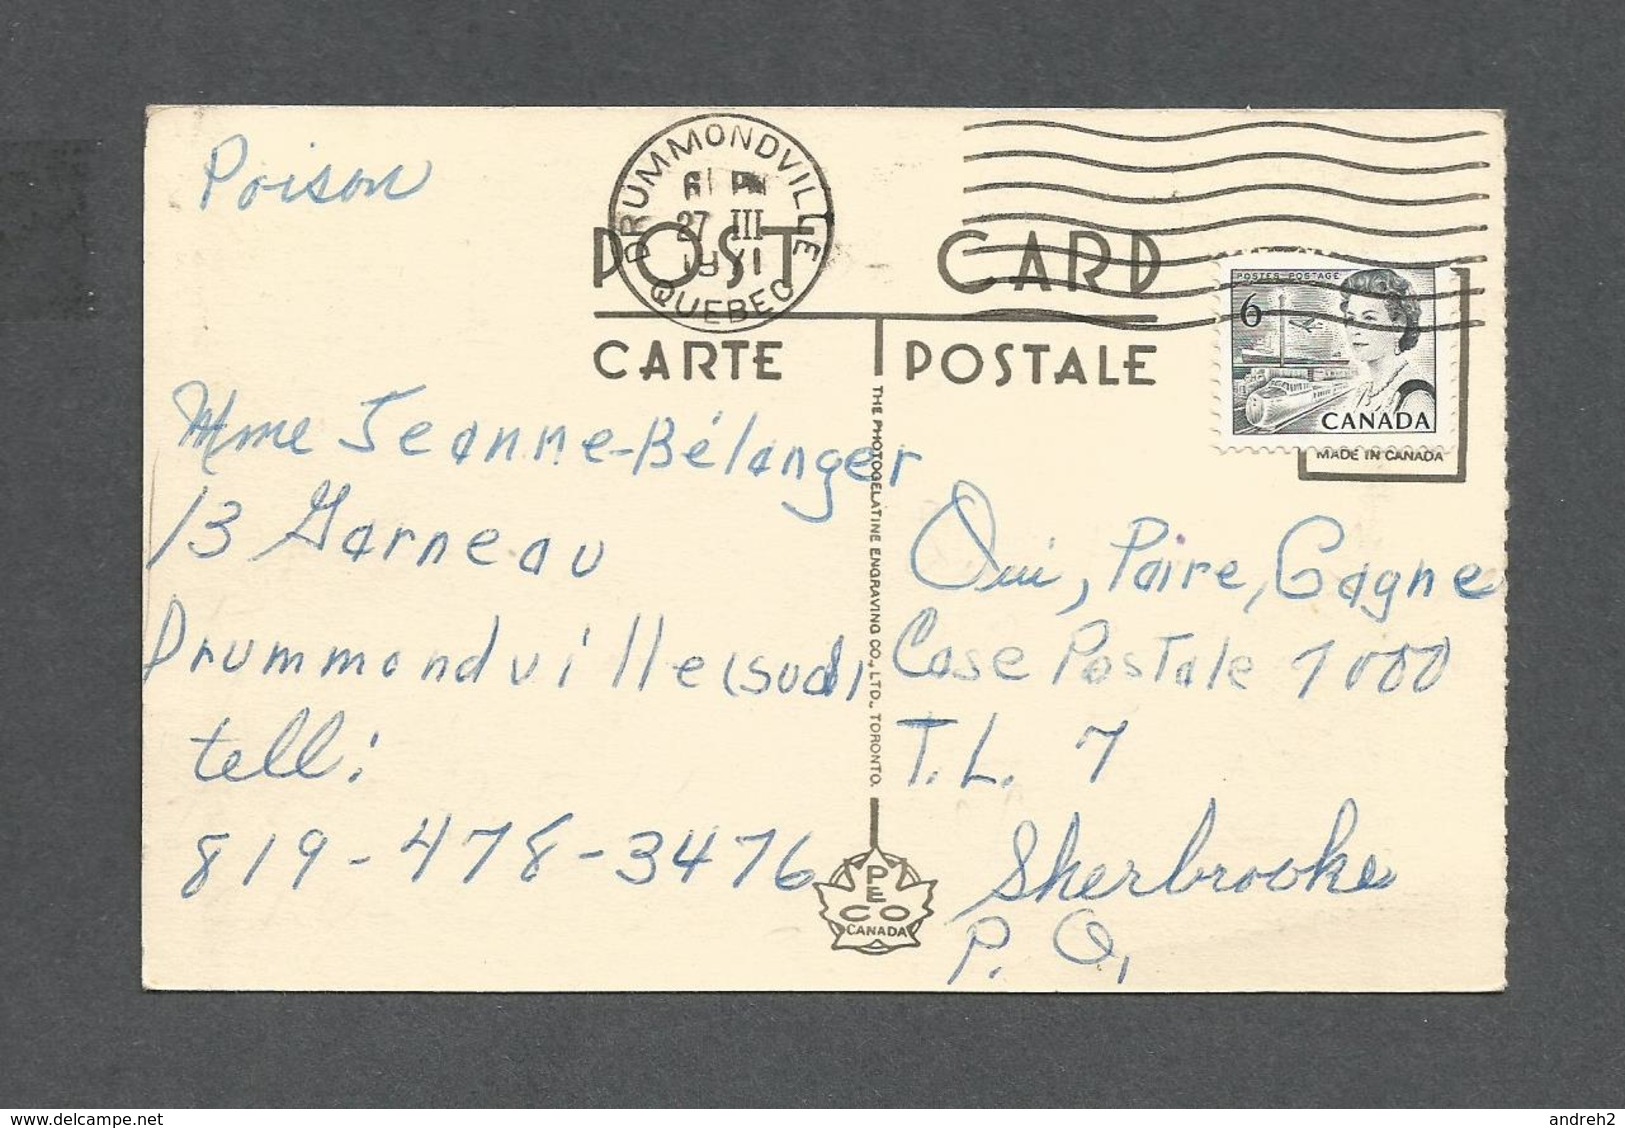 Poison
DRUMMONDVILLE
PM
27 III
1971
QUEBEC
POST CARD
CARTE POSTALE
POSTES POSTAGE
6
CANADA
MADE IN CANADA
Mme Jeanne-Bélanger
13 Garneau
Drummondville (sud)
tell:
819-478-3476
THE PHOTOGELATINE ENGRAVING CO., LTD., TORONTO.
PECO
CANADA
Oui, Paire, Gagne
Case Postale 7000
T.L. 7
Sherbrooke
P. Q,
delcampe.net
andreh2